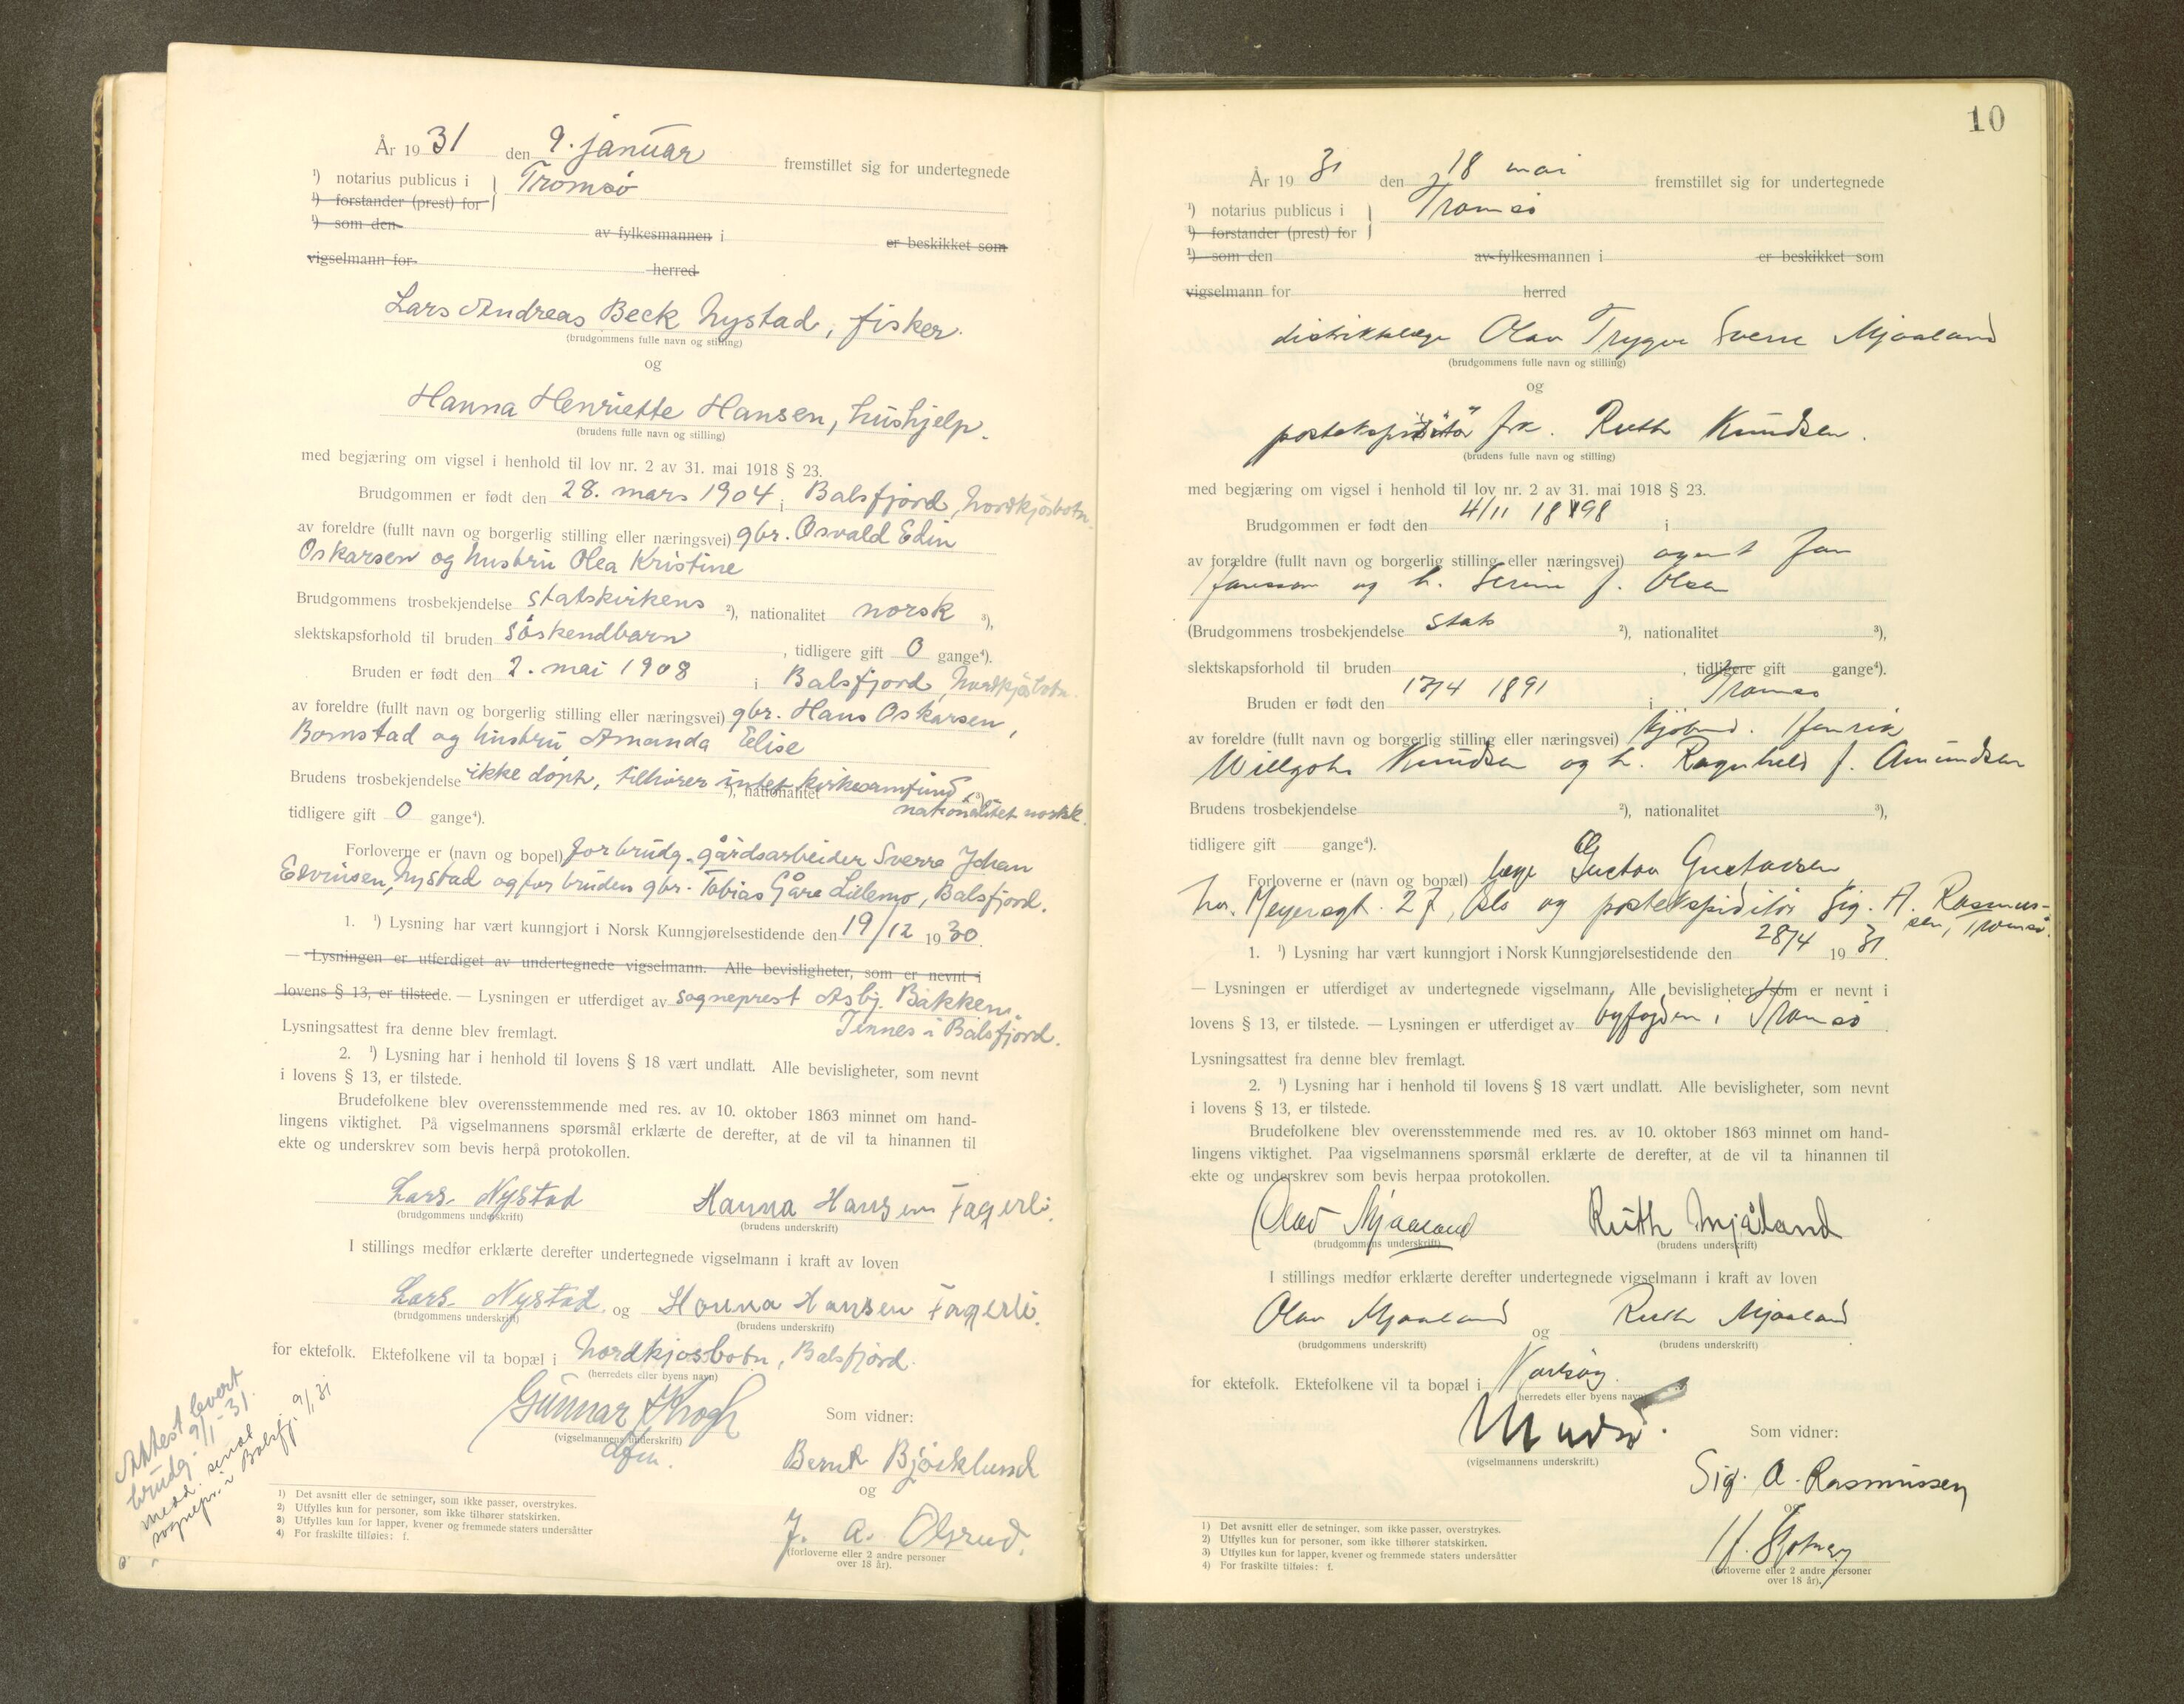 År 1931 den 9. januar fremstillet sig for undertegnede
¹) notarius publicus i } Tromsø
¹) forstander (prest) for
¹) som den av fylkesmannen i er beskikket som
vigselmann for herred
Lars Andreas Beck Nystad, fisker.
(brudgommens fulle navn og stilling)
og
Hanna Henriette Hansen, hushjelp.
(brudens fulle navn og stilling)
med begjæring om vigsel i henhold til lov nr. 2 av 31. mai 1918 § 23.
Brudgommen er født den 28. mars 1904 i Balsfjord, Nordkjosbotn.
av foreldre (fullt navn og borgerlig stilling eller næringsvei) gbr. Osvald Edin
Oskarsen og hustru Olea Kristine
Brudgommens trosbekjendelse statskirkens ²), nationalitet norsk ³),
slektskapsforhold til bruden søskendbarn, tidligere gift 0 gange⁴).
Bruden er født den 2. mai 1908 i Balsfjord, Nordkjosbotn.
av foreldre (fullt navn og borgerlig stilling eller næringsvei) gbr. Hans Oskarsen,
Bomstad og hustru Amanda Elise
Brudens trosbekjendelse ikke døpt, tilhører intet kirkesamfund, ²), nationalitet ³),
nationalitet norsk.
tidligere gift 0 gange⁴).
Forloverne er (navn og bopel) for brudg. gårdsarbeider Sverre Johan
Edvinsen, Nystad og for bruden gbr. Tobias Gåre Lillemo, Balsfjord.
1. ¹) Lysning har vært kunngjort i Norsk Kunngjørelsestidende den 19/12 1930.
— Lysningen er utferdiget av undertegnede vigselmann. Alle bevisligheter, som er nevnt i
lovens § 13, er tilstede. — Lysningen er utferdiget av sogneprest Asbj. Bakken,
Tennes i Balsfjord.
Lysningsattest fra denne blev fremlagt.
2. ¹) Lysning har i henhold til lovens § 18 vært undlatt. Alle bevisligheter, som nevnt
i lovens § 13, er tilstede.
Brudefolkene blev overensstemmende med res. av 10. oktober 1863 minnet om hand-
lingens viktighet. På vigselmannens spørsmål erklærte de derefter, at de vil ta hinannen til
ekte og underskrev som bevis herpå protokollen.
Lars Nystad Hanna Hansen Fagerli.
(brudgommens underskrift) (brudens underskrift)
I stillings medfør erklærte derefter undertegnede vigselmann i kraft av loven
Lars Nystad og Hanna Hansen Fagerli.
(brudgommens underskrift) (brudens underskrift)
for ektefolk. Ektefolkene vil ta bopæl i Nordkjosbotn, Balsfjord.
(herredets eller byens navn)
Gunnar Krogh
(vigselmannens underskrift)
Som vidner:
Bernt Bjørklund
og
J. A. Olsrud.
(forloverne eller 2 andre personer
over 18 år).
Attest levert
brudg. 9/1-31.
medd. sendt
sognepr. i Balsfj. 9/1 31
1) Det avsnitt eller de setninger, som ikke passer, overstrykes.
2) Utfylles kun for personer, som ikke tilhører statskirken.
3) Utfylles kun for lapper, kvener og fremmede staters undersåtter
4) For fraskilte tilføies: f.
10
År 1931 den 18 mai fremstillet sig for undertegnede
¹) notarius publicus i } Tromsø
¹) forstander (prest) for
¹) som den av fylkesmannen i er beskikket som
vigselmann for herred
distriktslæge Olav Trygve Sverre Mjaaland
(brudgommens fulle navn og stilling)
og
postekspeditør frk. Ruth Knudsen.
(brudens fulle navn og stilling)
med begjæring om vigsel i henhold til lov nr. 2 av 31. mai 1918 § 23.
Brudgommen er født den 4/11 1898 i
av forældre (fullt navn og borgerlig stilling eller næringsvei) agent Jan
Jansson og h. Serine f. Olsen
(Brudgommens trosbekjendelse stats ²), nationalitet ³),
slektskapsforhold til bruden, tidligere gift gange⁴).
Bruden er født den 17/4 1891 i Tromsø
av foreldre (fullt navn og borgerlig stilling eller næringsvei) kjøbmd. Henrik
Willgohs Knudsen og h. Ragnhild f. Amundsen
Brudens trosbekjendelse ²), nationalitet ³),
tidligere gift gange⁴).
Forloverne er (navn og bopæl) læge Gustav Gustavsen
Meyersgt. 27, Oslo og postekspeditør Sig. A. Rasmus-
sen, Tromsø.
1. ¹) Lysning har vært kunngjort i Norsk Kunngjørelsestidende den 28/4 1931.
— Lysningen er utferdiget av undertegnede vigselmann. Alle bevisligheter, som er nevnt i
lovens § 13, er tilstede. — Lysningen er utferdiget av byfogden i Tromsø
Lysningsattest fra denne blev fremlagt.
2. ¹) Lysning har i henhold til lovens § 18 vært undlatt. Alle bevisligheter, som nevnt
i lovens § 13, er tilstede.
Brudefolkene blev overensstemmende med res. av 10. oktober 1863 minnet om hand-
lingens viktighet. Paa vigselmannens spørsmål erklærte de derefter, at de vil ta hinannen til
ekte og underskrev som bevis herpaa protokollen.
Olav Mjaaland Ruth Mjåland
(brudgommens underskrift) (brudens underskrift)
I stillings medfør erklærte derefter undertegnede vigselmann i kraft av loven
Olav Mjaaland og Ruth Mjaaland
(brudgommens underskrift) (brudens underskrift)
for ektefolk. Ektefolkene vil ta bopæl i
(herredets eller byens navn)
(vigselmannens underskrift.)
Som vidner:
Sig. A. Rasmussen
og
(forloverne eller 2 andre personer
over 18 år).
1) Det avsnitt eller de setninger, som ikke passer, overstrykes.
2) Utfylles kun for personer, som ikke tilhører statskirken.
3) Utfylles kun for lapper, kvener og fremmede staters undersåtter
4) For fraskilte tilføies: f.